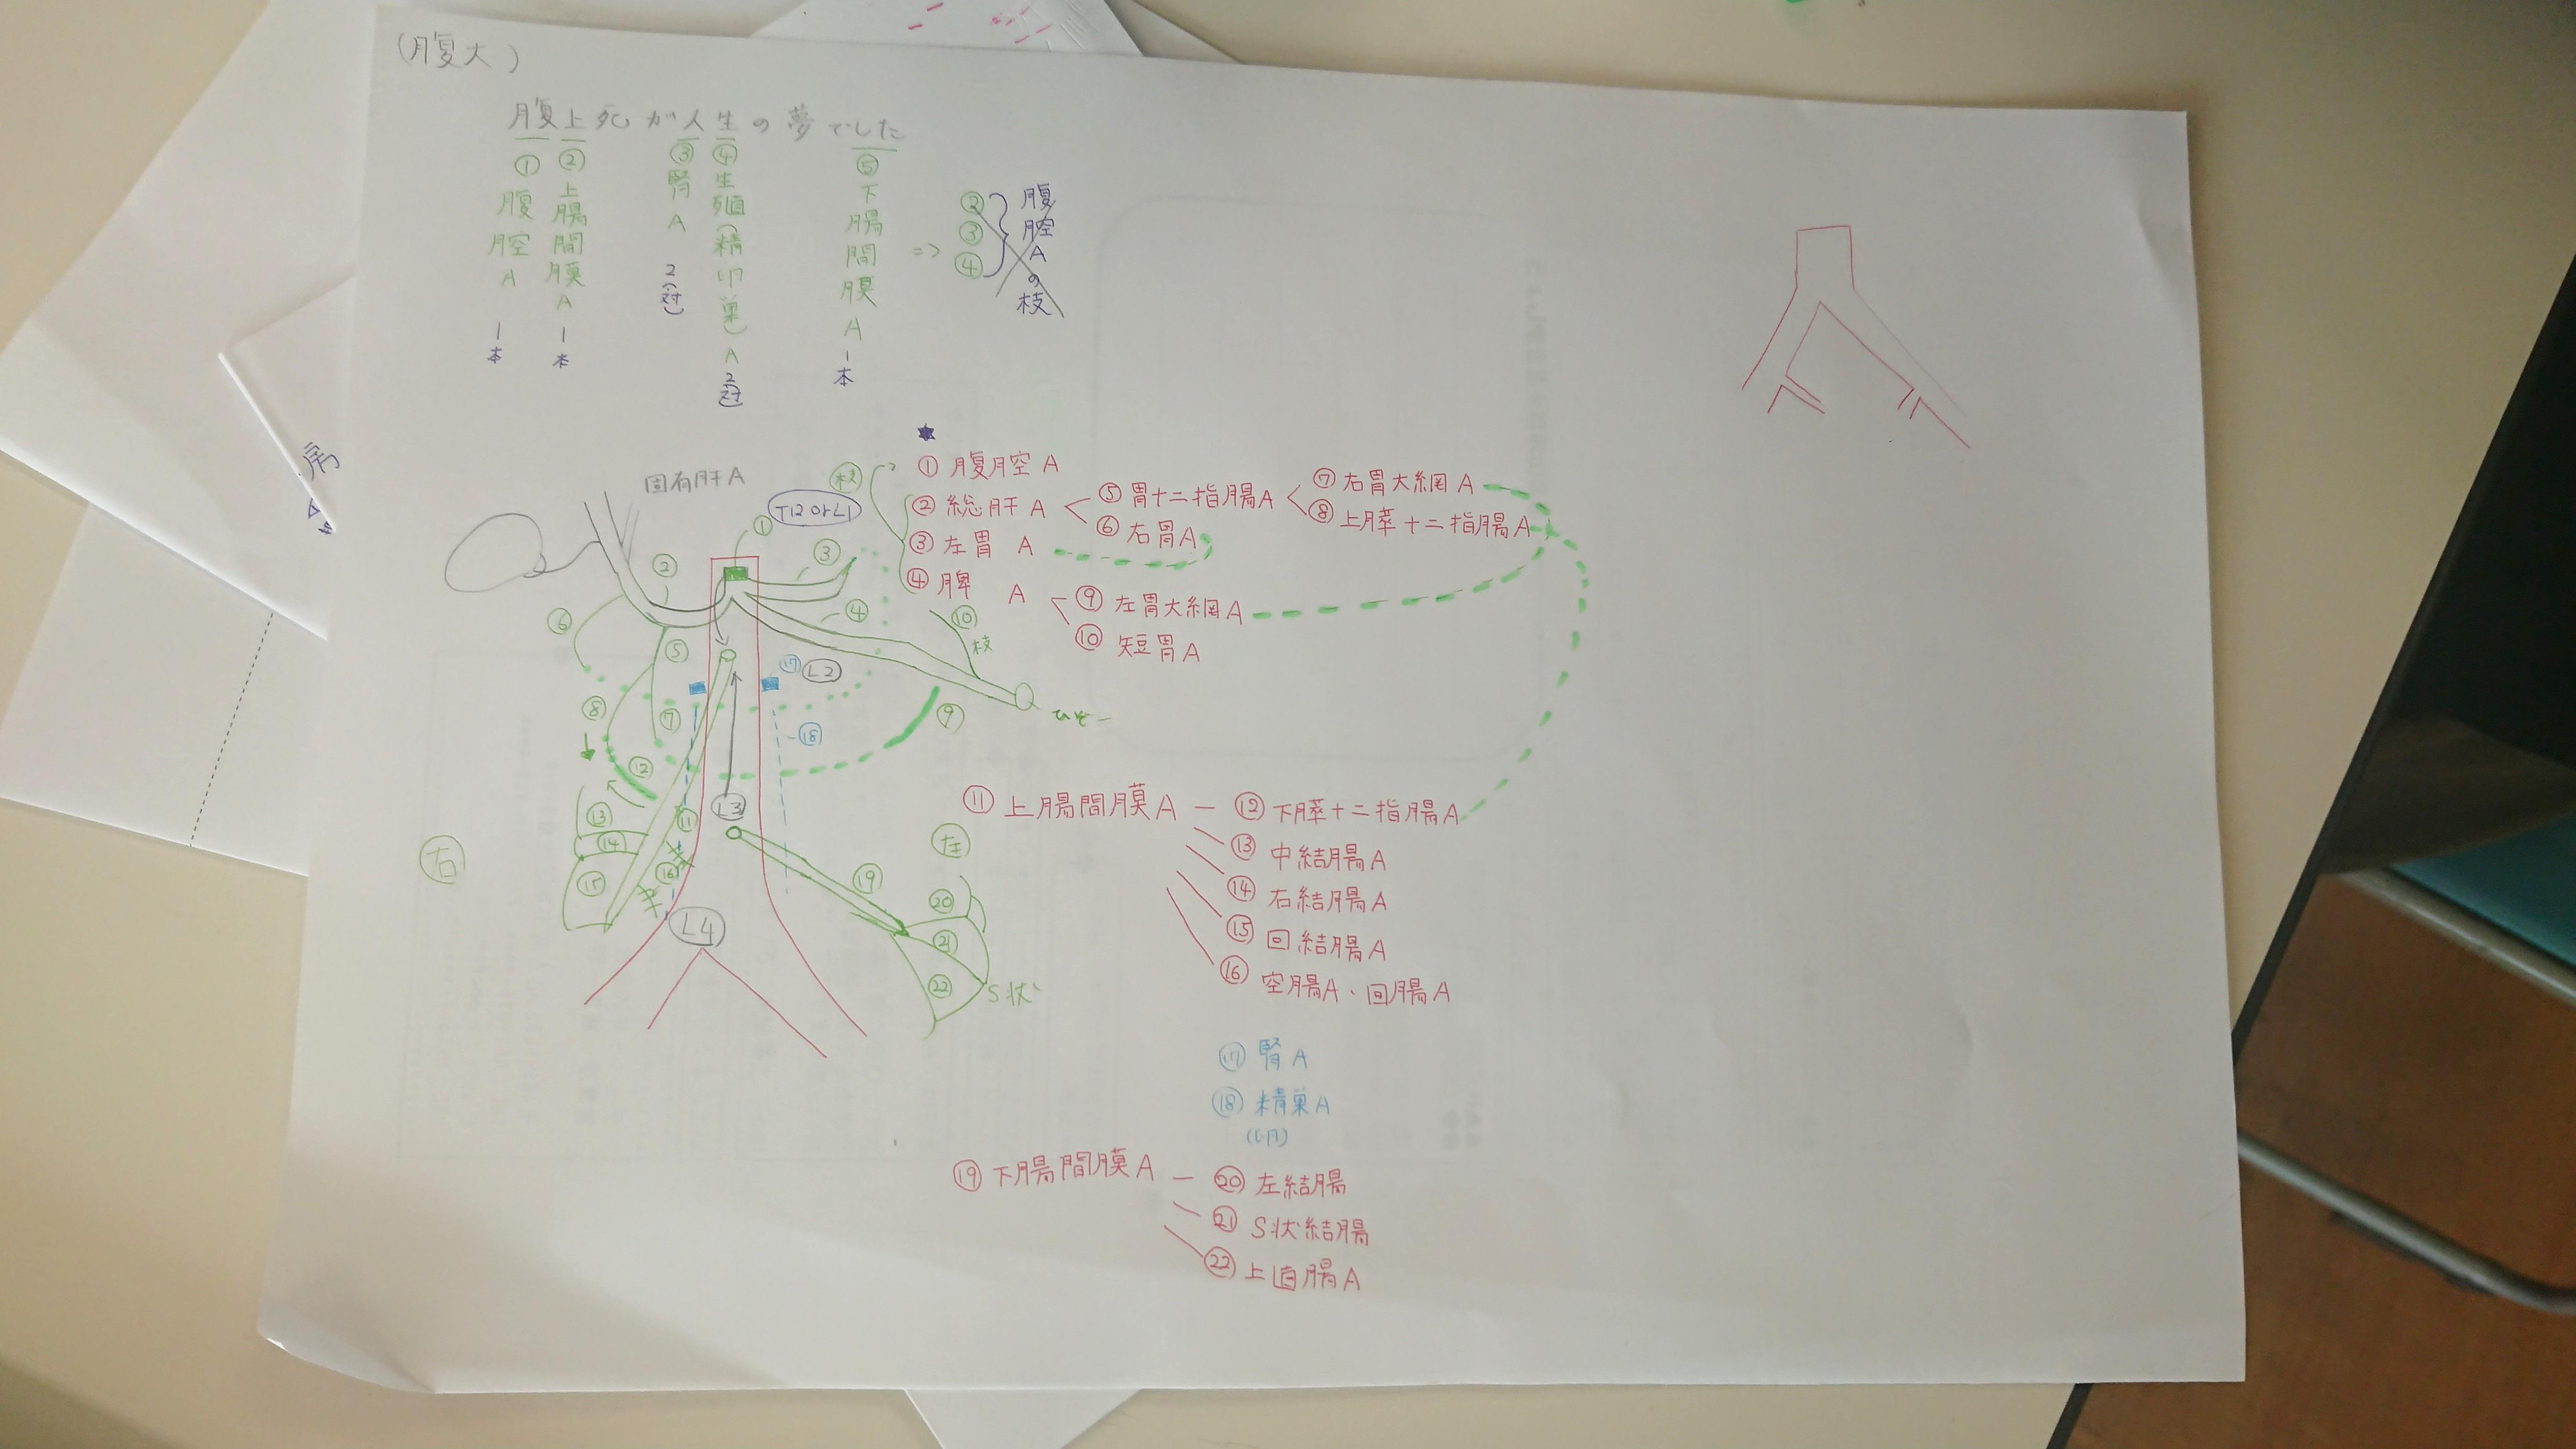 (腹大)
腹上死が人生の夢でした
① 腹腔A 1本
② 上腸間膜A 1本
③ 腎A 2(対)
④ 生殖(精卵巣)A 2(対)
⑤ 下腸間膜A 1本
=> ②③④ 腹腔Aの枝
★
枝
① 腹腔A
② 総肝A
⑤ 胃十二指腸A
⑦ 右胃大網A
⑧ 上膵十二指腸A
⑥ 右胃A
③ 左胃A
④ 脾A
⑨ 左胃大網A
⑩ 短胃A
固有肝A
T12 or L1
①
②
③
④
⑥
⑤
⑩
枝
⑰ L2
⑧
⑦
⑨
ひぞー
⑱
⑫
L3
⑬
⑪
⑭
⑮
⑯
右
左
⑲
⑳
㉑
㉒
L4
S状
⑪ 上腸間膜A ― ⑫ 下膵十二指腸A
⑬ 中結腸A
⑭ 右結腸A
⑮ 回結腸A
⑯ 空腸A、回腸A
⑰ 腎A
⑱ 精巣A
⑲ 下腸間膜A ― ⑳ 左結腸
㉑ S状結腸
㉒ 上直腸A